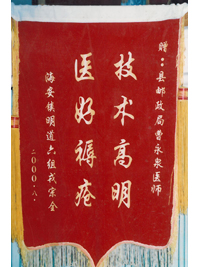 赠：县邮政局曹永泉医师
技术高明
医好褥疮
海安镇明道六组戎宗全
二000.八.